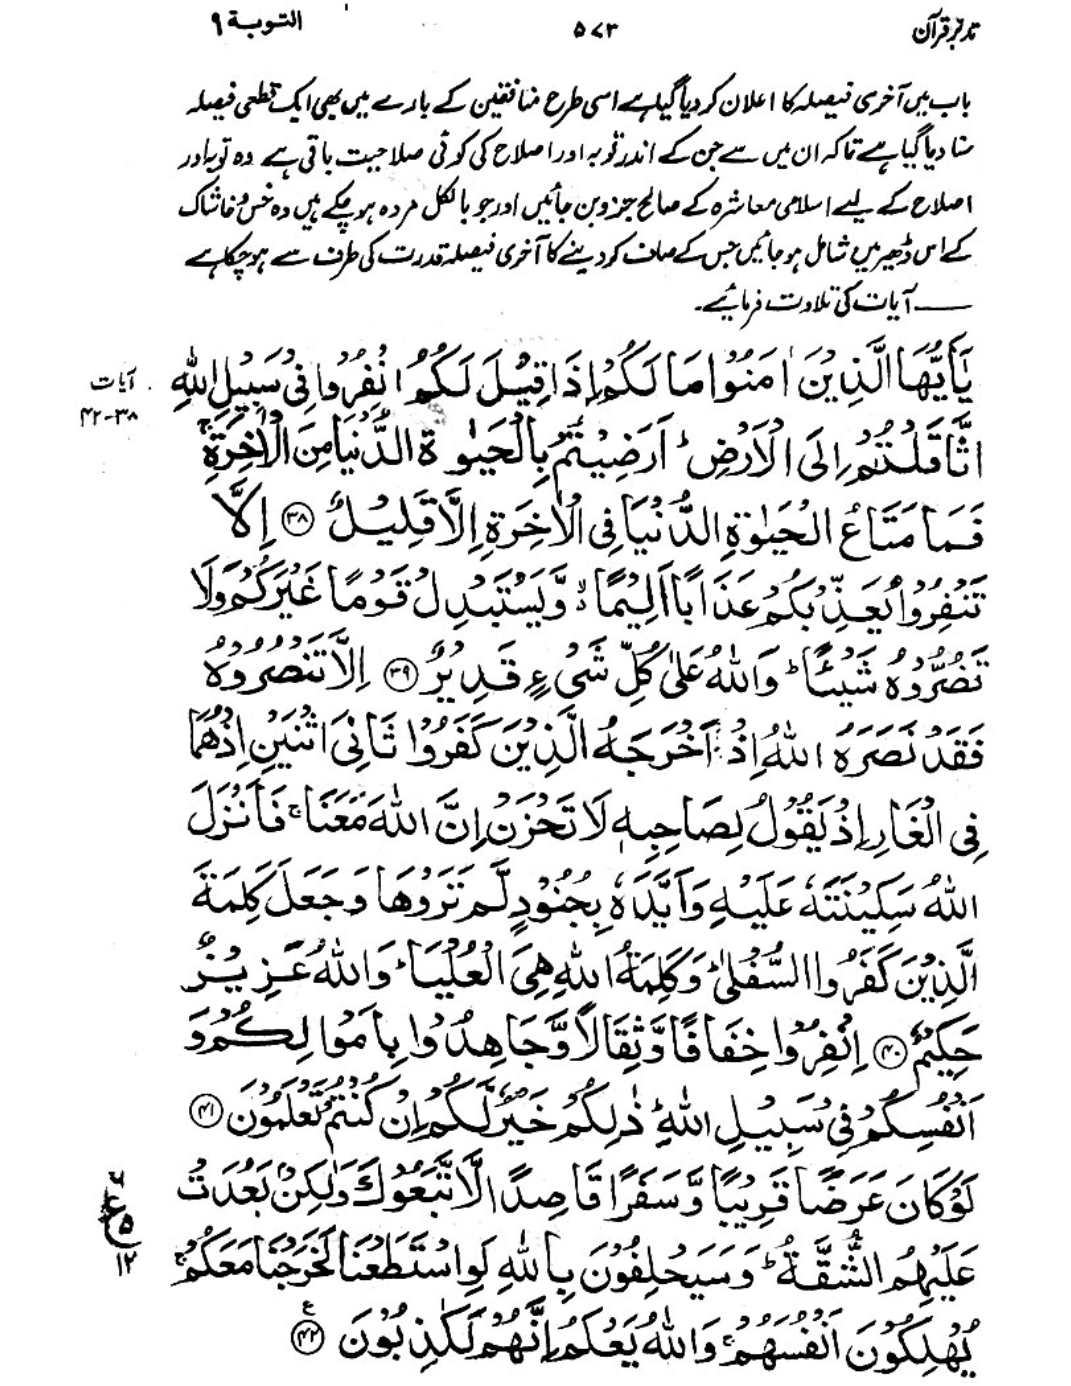 تدبرِ قرآن ۵۷۳ التوبۃ ۹
باب میں آخری فیصلہ کا اعلان کر دیا گیا ہے اسی طرح منافقین کے بارے میں بھی ایک قطعی فیصلہ
سنا دیا گیا ہے تاکہ ان میں سے جن کے اندر توبہ اور اصلاح کی کوئی صلاحیت باقی ہے وہ توبہ اور
اصلاح کے لیے اسلامی معاشرہ کے صالح جزو بن جائیں اور جو بالکل مردہ ہو چکے ہیں وہ خس و خاشاک
کے اس ڈھیر میں شامل ہو جائیں جس کے صاف کر دینے کا آخری فیصلہ قدرت کی طرف سے ہو چکا ہے
—— آیات کی تلاوت فرمائیے۔
يٰۤاَيُّهَا الَّذِيْنَ اٰمَنُوْا مَا لَكُمْ اِذَا قِيْلَ لَكُمُ انْفِرُوْا فِيْ سَبِيْلِ اللّٰهِ
آیات
۳۸-۴۲
اثَّاقَلْتُمْ اِلَى الْاَرْضِ ؕ اَرَضِيْتُمْ بِالْحَيٰوةِ الدُّنْيَا مِنَ الْاٰخِرَةِ ۚ
فَمَا مَتَاعُ الْحَيٰوةِ الدُّنْيَا فِي الْاٰخِرَةِ اِلَّا قَلِيْلٌ ﴿۳۸﴾ اِلَّا
تَنْفِرُوْا يُعَذِّبْكُمْ عَذَابًا اَلِيْمًا ۙ وَّيَسْتَبْدِلْ قَوْمًا غَيْرَكُمْ وَلَا
تَضُرُّوْهُ شَيْـًٔا ؕ وَاللّٰهُ عَلٰى كُلِّ شَيْءٍ قَدِيْرٌ ﴿۳۹﴾ اِلَّا تَنْصُرُوْهُ
فَقَدْ نَصَرَهُ اللّٰهُ اِذْ اَخْرَجَهُ الَّذِيْنَ كَفَرُوْا ثَانِيَ اثْنَيْنِ اِذْ هُمَا
فِي الْغَارِ اِذْ يَقُوْلُ لِصَاحِبِهٖ لَا تَحْزَنْ اِنَّ اللّٰهَ مَعَنَا ۚ فَاَنْزَلَ
اللّٰهُ سَكِيْنَتَهٗ عَلَيْهِ وَاَيَّدَهٗ بِجُنُوْدٍ لَّمْ تَرَوْهَا وَجَعَلَ كَلِمَةَ
الَّذِيْنَ كَفَرُوا السُّفْلٰى ؕ وَكَلِمَةُ اللّٰهِ هِيَ الْعُلْيَا ؕ وَاللّٰهُ عَزِيْزٌ
حَكِيْمٌ ﴿۴۰﴾ اِنْفِرُوْا خِفَافًا وَّثِقَالًا وَّجَاهِدُوْا بِاَمْوَالِكُمْ وَ
اَنْفُسِكُمْ فِيْ سَبِيْلِ اللّٰهِ ؕ ذٰلِكُمْ خَيْرٌ لَّكُمْ اِنْ كُنْتُمْ تَعْلَمُوْنَ ﴿۴۱﴾
لَوْ كَانَ عَرَضًا قَرِيْبًا وَّسَفَرًا قَاصِدًا لَّاتَّبَعُوْكَ وَلٰكِنْۢ بَعُدَتْ
عَلَيْهِمُ الشُّقَّةُ ؕ وَسَيَحْلِفُوْنَ بِاللّٰهِ لَوِ اسْتَطَعْنَا لَخَرَجْنَا مَعَكُمْ ۚ
ع
۵
۱۲
يُهْلِكُوْنَ اَنْفُسَهُمْ ۚ وَاللّٰهُ يَعْلَمُ اِنَّهُمْ لَكٰذِبُوْنَ ﴿۴۲﴾